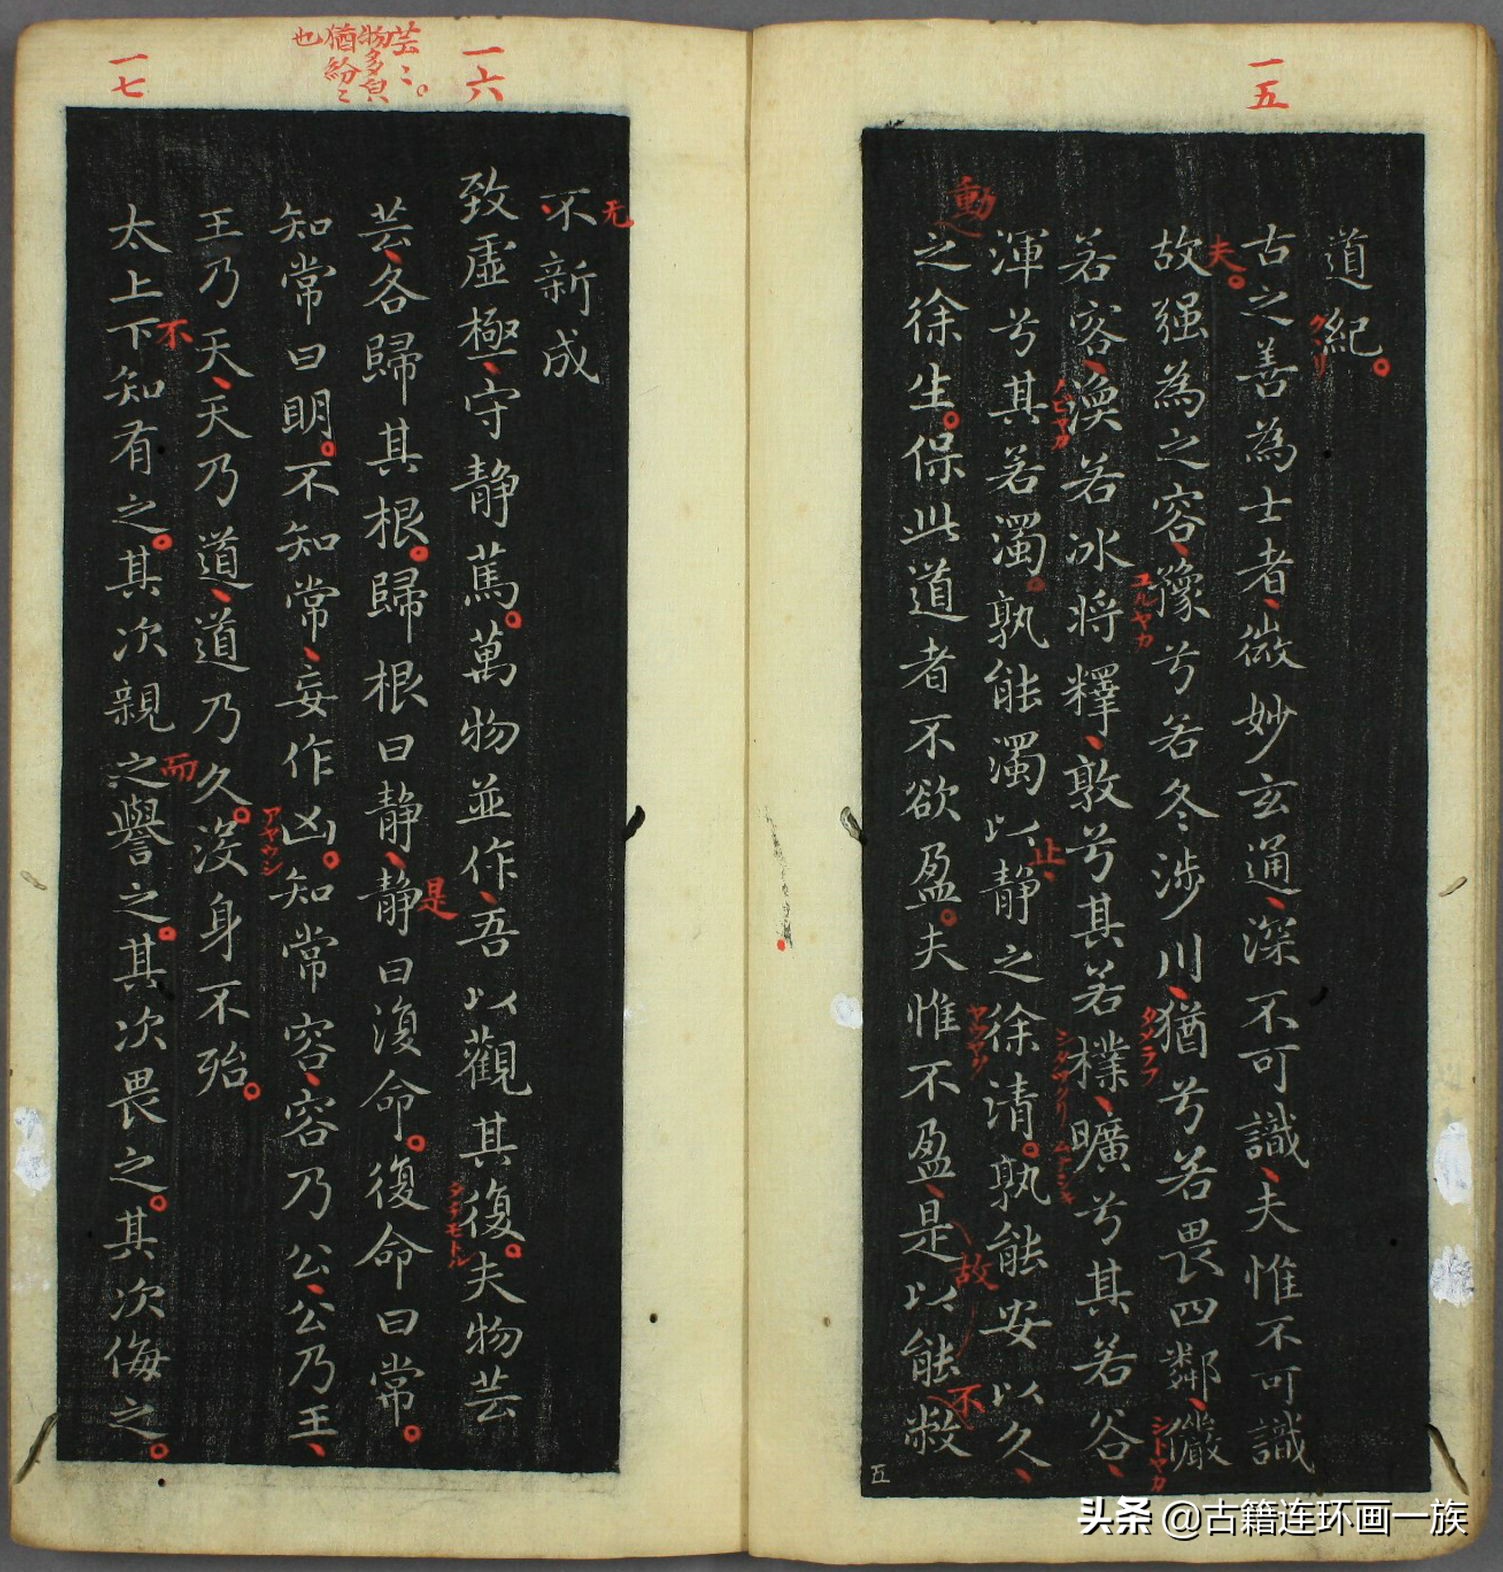 一五
道紀
古之善為士者微妙玄通深不可識夫惟不可識
故強為之容豫兮若冬涉川猶兮若畏四鄰儼
若容渙若冰將釋敦兮其若樸曠兮其若谷
渾兮其若濁孰能濁以静之徐清孰能安以久
之徐生保此道者不欲盈夫惟不盈是以能敝
夫
動
止
故
不
クヽリ
ユルヤカ
タメラフ
シトヤカ
五
一六
芸〻
物多皃
猶紛〻
也
不新成
致虛極守静篤萬物並作吾以觀其復夫物芸
芸各歸其根歸根曰静静曰復命復命曰常
知常曰明不知常妄作凶知常容容乃公公乃王
王乃天天乃道道乃久沒身不殆
一七
太上下知有之其次親之譽之其次畏之其次侮之
无
是
タチモトル
アヤウシ
不
而
头条 @古籍连环画一族